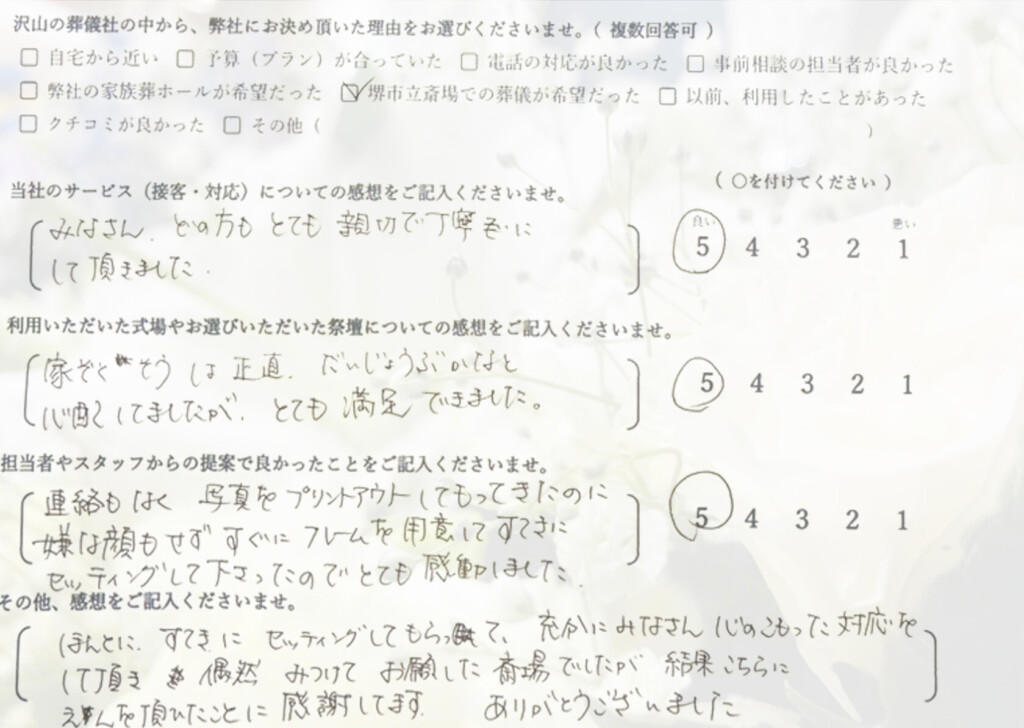 沢山の葬儀社の中から、弊社にお決め頂いた理由をお選びくださいませ。( 複数回答可 )
□ 自宅から近い □ 予算（プラン）が合っていた □ 電話の対応が良かった □ 事前相談の担当者が良かった
□ 弊社の家族葬ホールが希望だった ☑ 堺市立斎場での葬儀が希望だった □ 以前、利用したことがあった
□ クチコミが良かった □ その他（ ）
当社のサービス（接客・対応）についての感想をご記入くださいませ。
（ ○を付けてください ）
みなさん、どの方も とても 親切で丁寧に
して頂きました.
良い 悪い
5 4 3 2 1
利用いただいた式場やお選びいただいた祭壇についての感想をご記入くださいませ。
家ぞくそう は 正直、だいじょうぶかなと
心配してましたが、とても 満足 できました。
5 4 3 2 1
担当者やスタッフからの提案で良かったことをご記入くださいませ。
連絡もなく 写真を プリントアウトしてもってきたのに
嫌な顔もせず すぐに フレームを用意して すてきに
セッティングして下さったので とても 感動しました.
5 4 3 2 1
その他、感想をご記入くださいませ。
ほんとに、すてきに セッティングしてもらって、 みなさん 心のこもった 対応を
して頂き 偶然 みつけて お願した 斎場でしたが 結果 こちらに
えんを頂いたことに 感謝してます. ありがとうございました